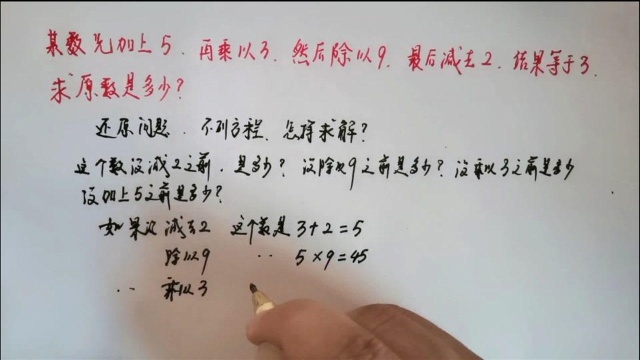 某数先加上5、再乘以3、然后除以9、最后减去2、结果等于3.
求原数是多少?
还原问题、不列方程、怎样求解?
这个数没减2之前、是多少? 没除以9之前是多少? 没乘以3之前是多少
没加上5之前是多少?
如果没减去2 这个数是 3+2=5
除以9 ‥ 5×9=45
‥ 乘以3